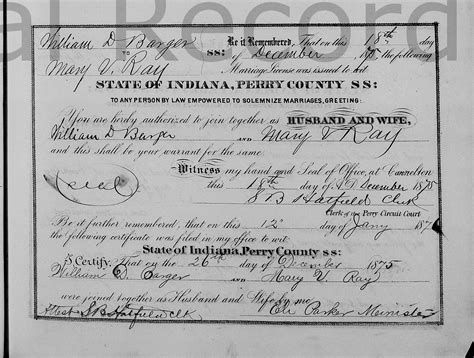 al Record
William D Barger Be it Remembered, That on this 18th day
TO SS: of December 1875 the following
Mary V. Ray Marriage License was issued to wit
STATE OF INDIANA, PERRY COUNTY SS:
TO ANY PERSON BY LAW EMPOWERED TO SOLEMNIZE MARRIAGES, GREETING:
You are hereby authorized to join together as HUSBAND AND WIFE,
William D Barger AND Mary V Ray
and this shall be your warrant for the same.
Witness my hand and Seal of Office, at Cannelton
(seal) this 18th day of December 1875
S B Hatfield Clk
Clerk of the Perry Circuit Court
Be it further remembered, that on this 12th day of Jany 187
the following certificate was filed in my office to wit:
State of Indiana, Perry County ss:
I Certify, That on the 26th day of December 1875
William D. Barger AND Mary V. Ray
were joined together as Husband and Wife by me
Attest S B Hatfield Clk Eli Parker Meinister